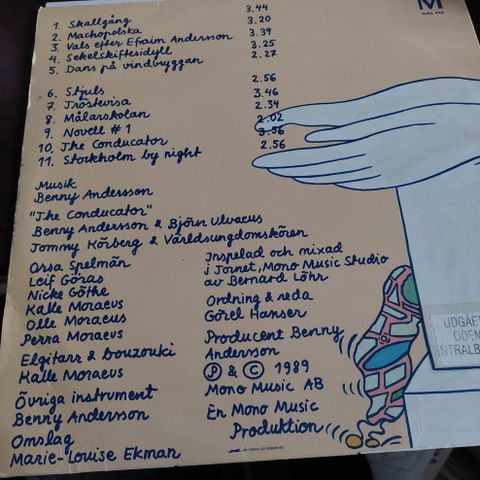 M
1. Skallgång 3.44
2. Machopolska 3.20
3. Vals efter Efraim Andersson 3.39
4. Sekelskiftesidyll 3.25
5. Dans på vindbryggan 2.27
6. Stjuls 2.56
7. Tröstevisa 3.46
8. Målarskolan 2.34
9. Novell #1 2.02
10. The Conducator 3.56
11. Stockholm by night 2.56
Musik
Benny Andersson
"The Conducator"
Benny Andersson & Björn Ulvaeus
Tommy Körberg & Världsungdomskören
Orsa Spelmän
Leif Göras
Nicke Göthe
Kalle Moraeus
Olle Moraeus
Perra Moraeus
Elgitarr & bouzouki
Kalle Moraeus
Övriga instrument
Benny Andersson
Omslag
Marie-Louise Ekman
Inspelad och mixad
i Tornet, Mono Music Studio
av Bernard Löhr
Ordning & reda
Görel Hanser
Producent Benny
Andersson
Ⓟ & © 1989
Mono Music AB
En Mono Music
Produktion
UDGÅET
ODEN
NTRALB